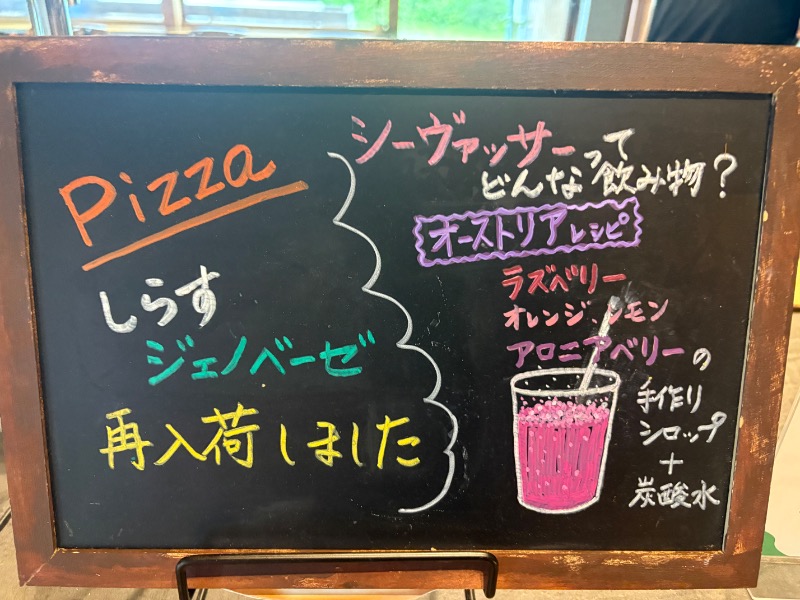 Pizza
しらす
ジェノベーゼ
再入荷しました
シーヴァッサーって
どんな飲み物?
オーストリアレシピ
ラズベリー
オレンジ、レモン
アロニアベリーの
手作り
シロップ
+
炭酸水